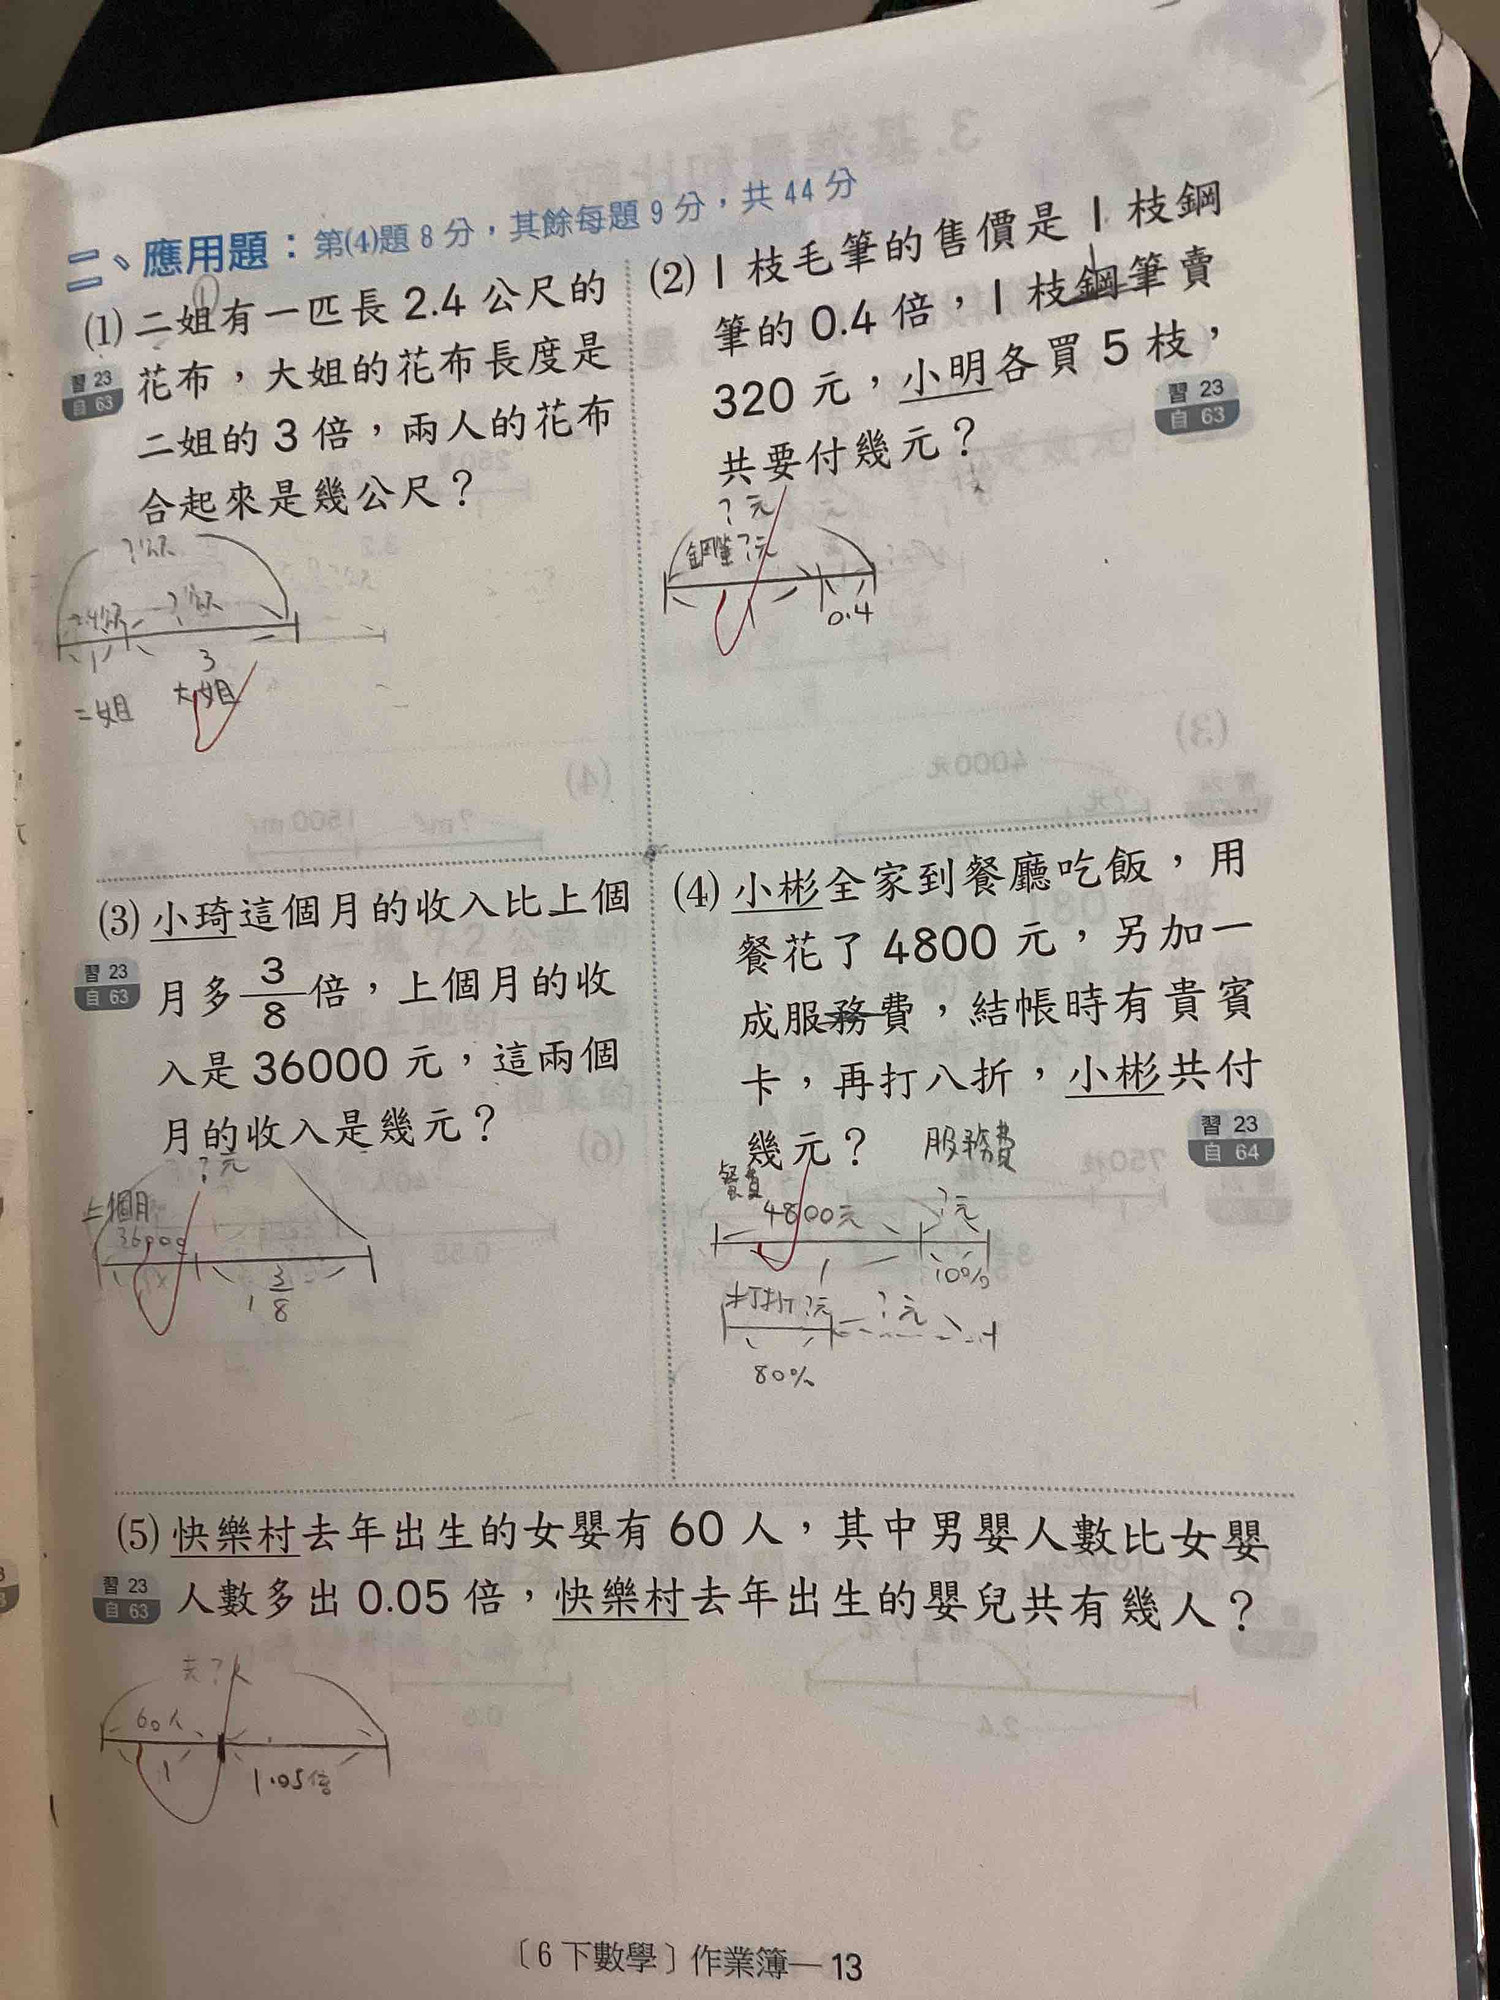 二、應用題：第(4)題 8 分，其餘每題 9 分，共 44 分
(1) 二姐有一匹長 2.4 公尺的
花布，大姐的花布長度是
二姐的 3 倍，兩人的花布
合起來是幾公尺？
習 23
自 63
2.4公尺
1
3
二姐
大姐
(2) 1 枝毛筆的售價是 1 枝鋼
筆的 0.4 倍，1 枝鋼筆賣
320 元，小明各買 5 枝，
共要付幾元？
習 23
自 63
？元
鋼筆？元
1
0.4
(3) 小琦這個月的收入比上個
月多 3/8 倍，上個月的收
入是 36000 元，這兩個
月的收入是幾元？
習 23
自 63
？元
上個月
36000
1 3/8
(4) 小彬全家到餐廳吃飯，用
餐花了 4800 元，另加一
成服務費，結帳時有貴賓
卡，再打八折，小彬共付
幾元？
習 23
自 64
服務費
餐費
4800元
？元
1
10%
打折？元
？元
80%
(5) 快樂村去年出生的女嬰有 60 人，其中男嬰人數比女嬰
人數多出 0.05 倍，快樂村去年出生的嬰兒共有幾人？
習 23
自 63
共？人
60人
1
1.05倍
〔6 下數學〕作業簿—13